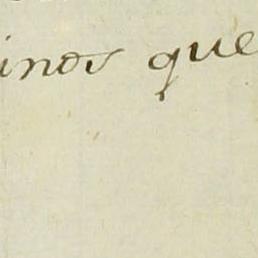 inos que